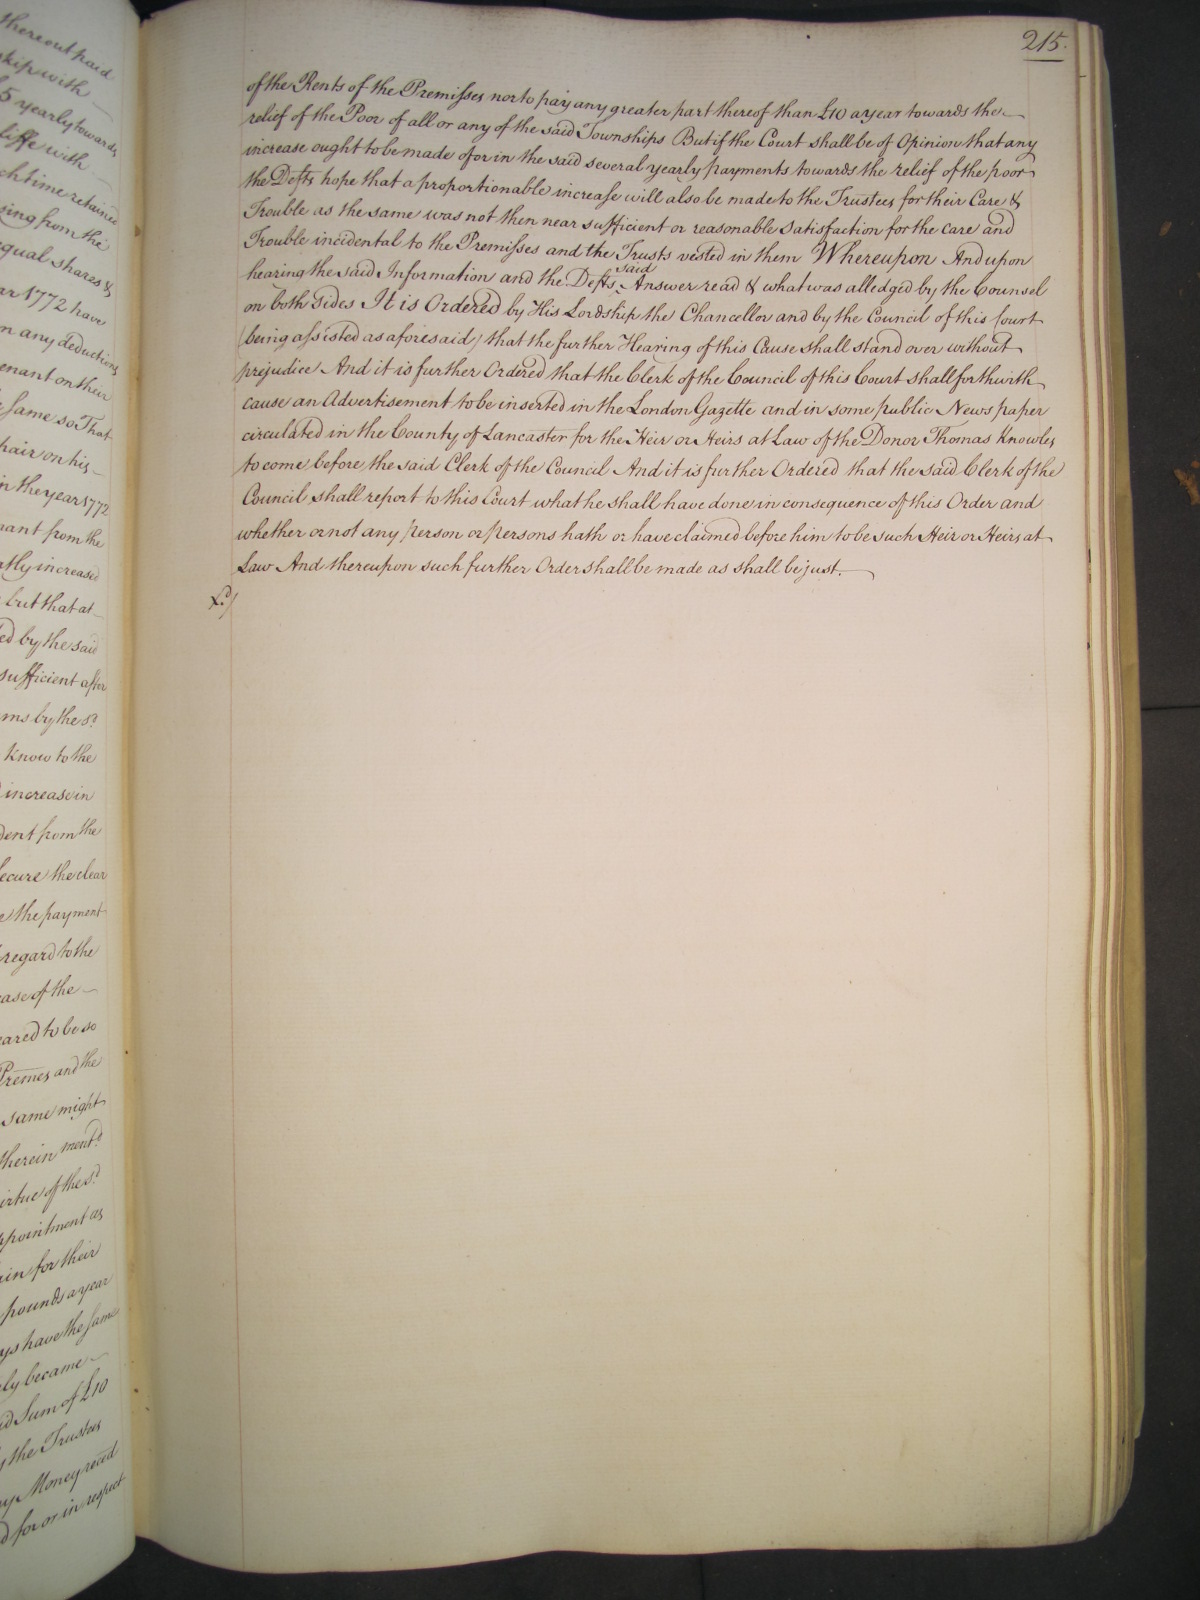 thereout paid
ship with
5 yearly towards
liffe with
ch time retained
sing from the
equal shares &
ar 1772 have
m any deductions
enant on their
same so That
hair on his
in the year 1772
nant from the
atly increased
but that at
ed by the said
sufficient after
ms by the sd
know to the
increase in
dent from the
secure the clear
e the payment
regard to the
ease of the
eared to be so
Premes and the
same might
therein mentd
irtue of the sd
ppointment as
ain for their
pounds a year
ys have the same
ly became
id Sum of £10
y the Trustees
ny Money reced
d for or in respect
215.
of the Rents of the Premisses nor to pay any greater part thereof than £10 a year towards the
relief of the Poor of all or any of the said Townships But if the Court shall be of Opinion that any
increase ought to be made of or in the said several yearly payments towards the relief of the poor
the Defts hope that a proportionable increase will also be made to the Trustees for their Care &
Trouble as the same was not then near sufficient or reasonable satisfaction for the care and
Trouble incidental to the Premisses and the Trusts vested in them Whereupon And upon
hearing the said Information and the Defts said Answer read & what was alledged by the Counsel
on both sides It is Ordered by His Lordship the Chancellor and by the Council of this Court
(being assisted as aforesaid) that the further Hearing of this Cause shall stand over without
prejudice And it is further Ordered that the Clerk of the Council of this Court shall forthwith
cause an Advertisement to be inserted in the London Gazette and in some public News paper
circulated in the County of Lancaster for the Heir or Heirs at Law of the Donor Thomas Knowles
to come before the said Clerk of the Council And it is further Ordered that the said Clerk of the
Council shall report to this Court what he shall have done in consequence of this Order and
whether or not any person or persons hath or have claimed before him to be such Heir or Heirs at
Law And thereupon such further Order shall be made as shall be just.